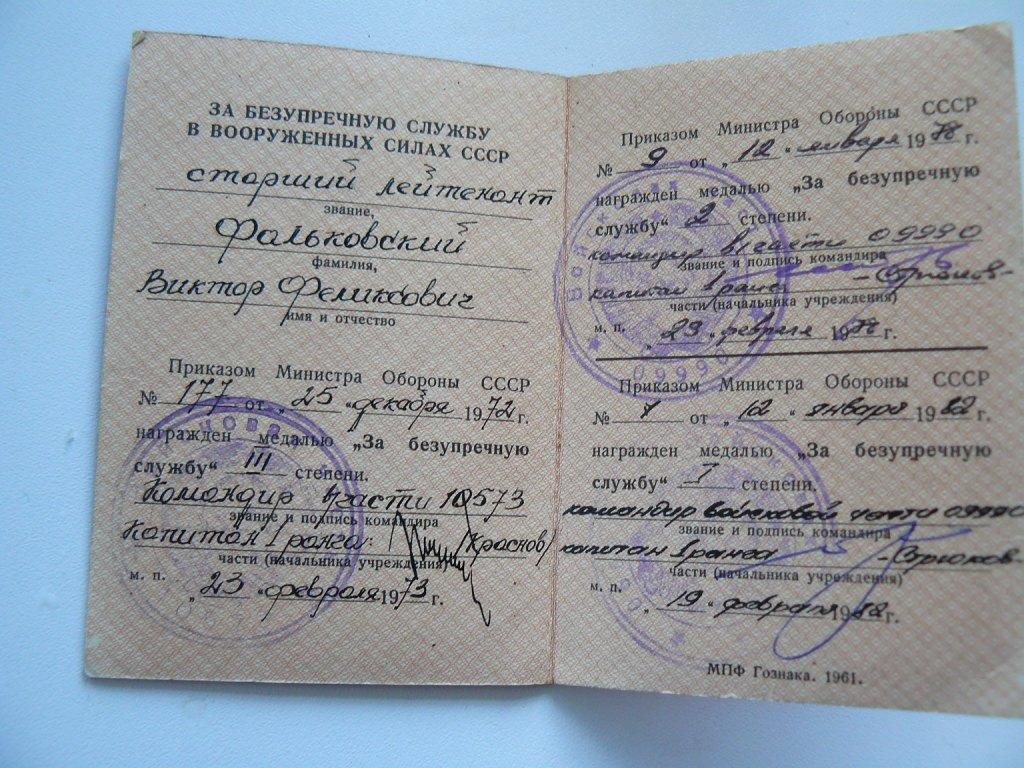 ЗА БЕЗУПРЕЧНУЮ СЛУЖБУ
В ВООРУЖЕННЫХ СИЛАХ СССР
старший лейтенант
звание,
Фальковский
фамилия,
Виктор Феликсович
имя и отчество
Приказом Министра Обороны СССР
№ 177 от „25 “декабря 1972 г.
награжден медалью „За безупречную
службу“ III степени.
Командир в/части 10573
звание и подпись командира
Капитан 1 ранга: /Краснов/
части (начальника учреждения)
м. п.
„23 “февраля 1973 г.
Приказом Министра Обороны СССР
№ 9 от „12 “января 1978 г.
награжден медалью „За безупречную
службу“ 2 степени.
командир в/части 09990
звание и подпись командира
капитан 1 ранга
части (начальника учреждения)
м. п. „23 “февраля 1978 г.
Приказом Министра Обороны СССР
№ от „12 “января 1982 г.
награжден медалью „За безупречную
службу“ I степени.
командир войсковой части 09990
звание и подпись командира
капитан 1 ранга
части (начальника учреждения)
м. п.
„19 “февраля 1982 г.
МПФ Гознака. 1961.